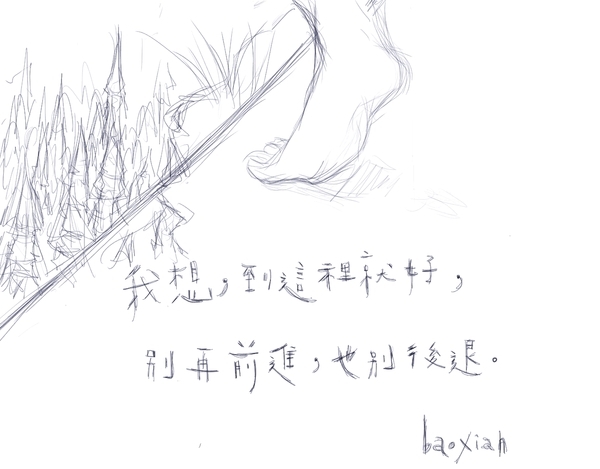 我想，到這裡就好，
別再前進，也別後退。
baoxian